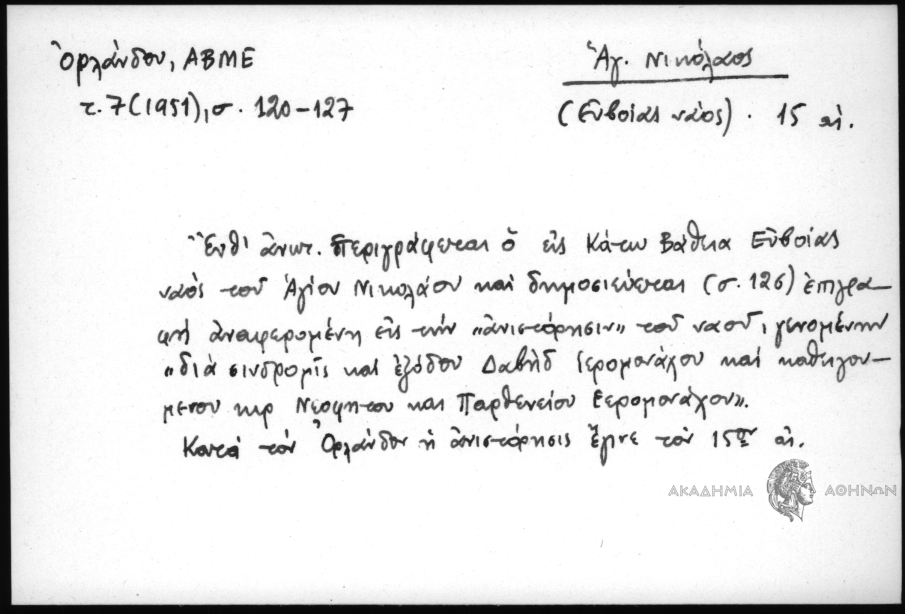 Ὀρλάνδου, ΑΒΜΕ
τ. 7 (1951), σ. 120-127
Ἁγ. Νικόλαος
(Εὐβοίας ναός) · 15 αἰ.
Ἔνθ' ἀνωτ. περιγράφεται ὁ εἰς Κάτω Βάθεια Εὐβοίας
ναός τοῦ Ἁγίου Νικολάου καί δημοσιεύεται (σ. 126) ἐπιγρα-
φή ἀναφερομένη εἰς τήν "ἀνιστόρησιν" τοῦ ναοῦ, γενομένην
"διά σινδρομῖς καί ἐξόδου Δαβήδ ἱερομονάχου καί καθηγου-
μενου κυρ Νεοφητου και Παρθενείου Εερομονάχου".
Κατά τόν Ὀρλάνδον ἡ ἀνιστόρησις ἔγινε τόν 15ον αἰ.
ΑΚΑΔΗΜΙΑ ΑΘΗΝΩΝ